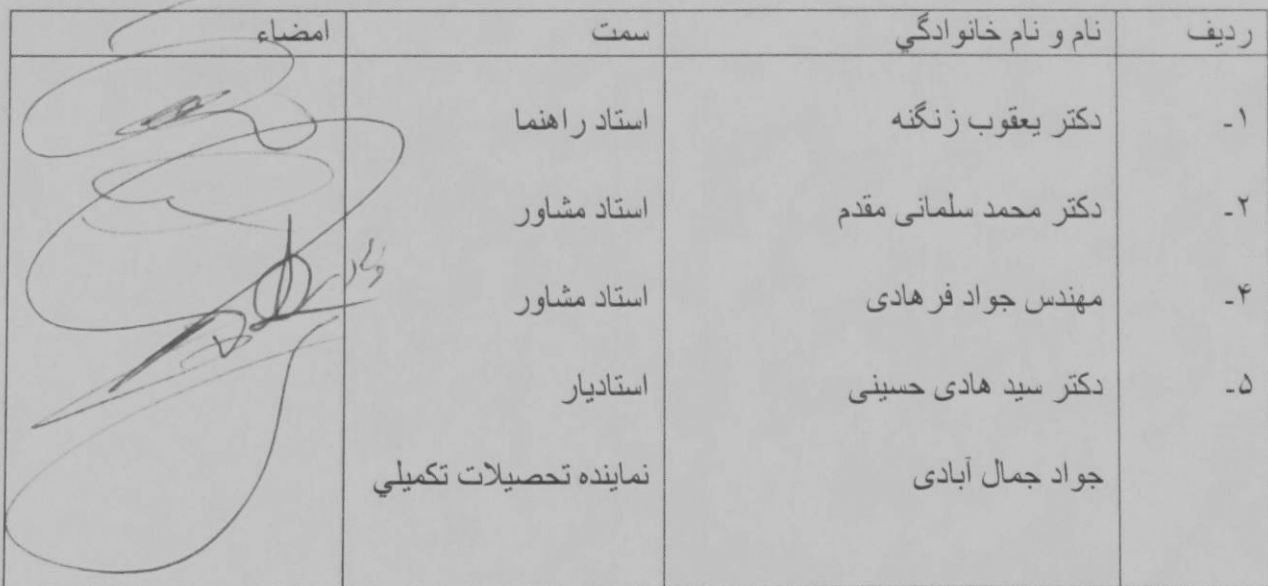 ردیف نام و نام خانوادگي سمت امضاء
۱- دکتر یعقوب زنگنه استاد راهنما
۲- دکتر محمد سلمانی مقدم استاد مشاور
۴- مهندس جواد فرهادی استاد مشاور
۵- دکتر سید هادی حسینی استادیار
جواد جمال آبادی نماینده تحصیلات تکمیلي